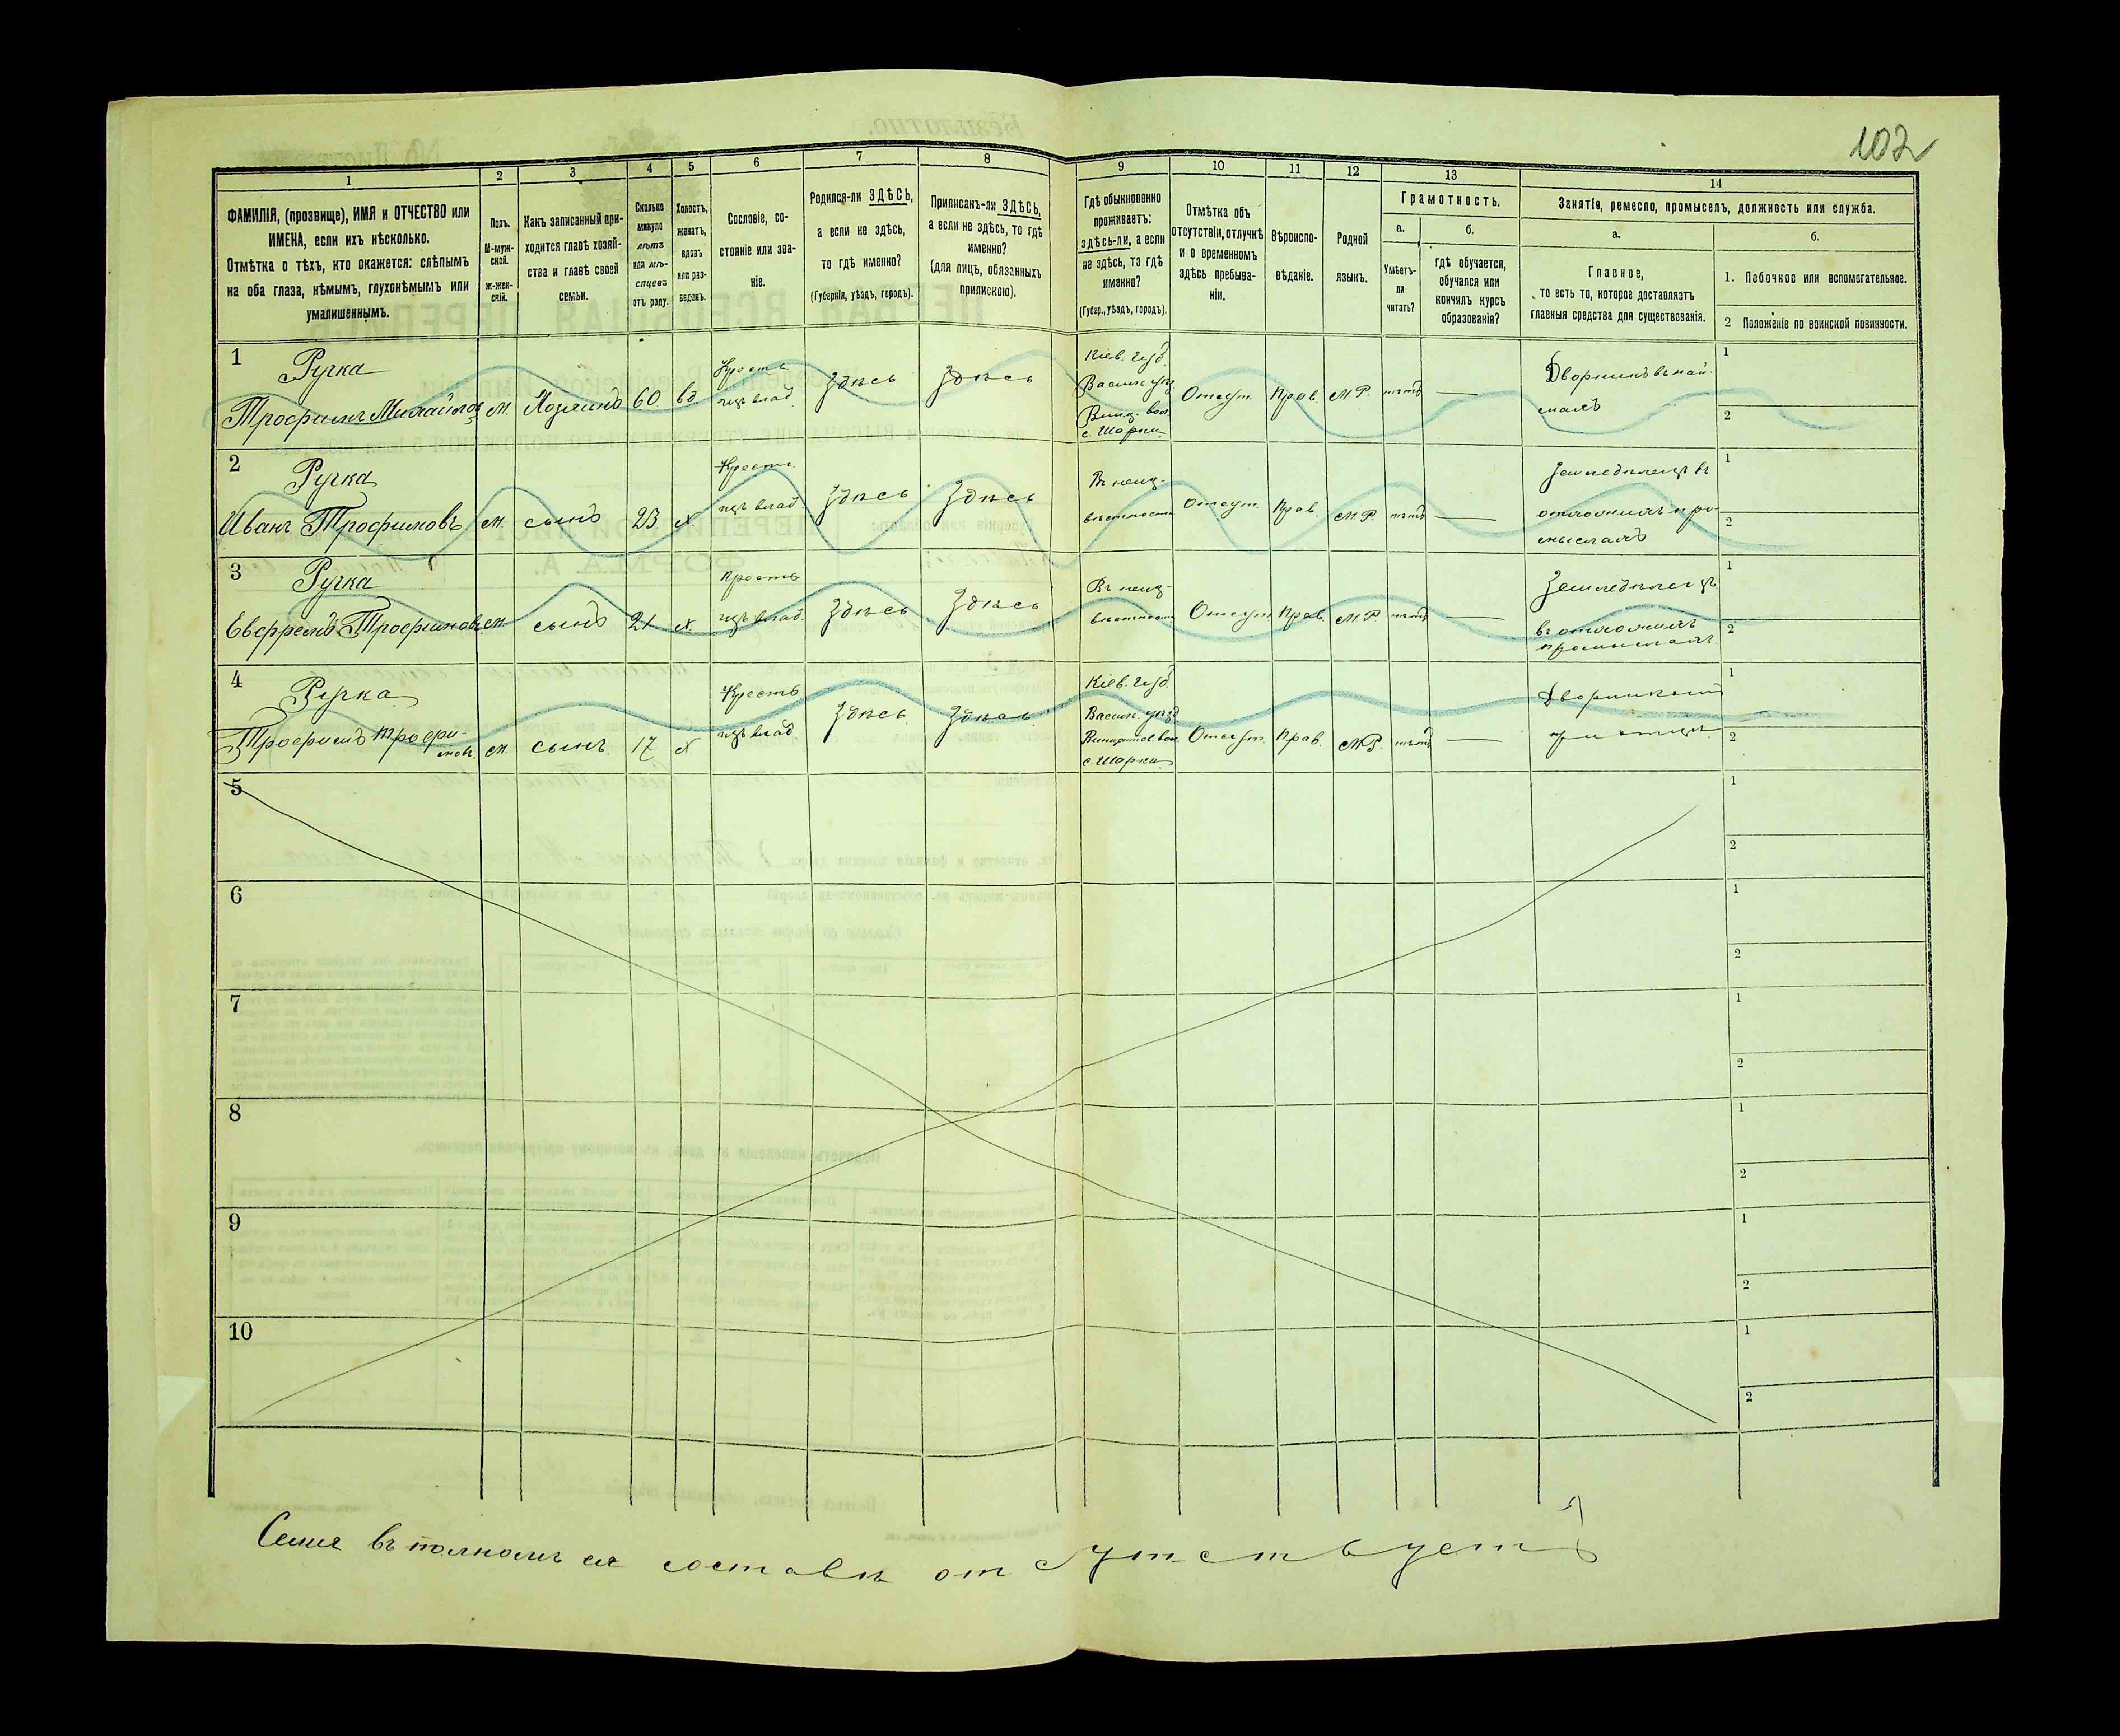 102
1
2
3
4
5
6
7
8
9
10
11
12
13
14
ФАМИЛІЯ, (прозвище), ИМЯ и ОТЧЕСТВО или
ИМЕНА, если ихъ нѣсколько.
Отмѣтка о тѣхъ, кто окажется: слѣпымъ
на оба глаза, нѣмымъ, глухонѣмымъ или
умалишеннымъ.
Полъ.
М-муж-
ской.
ж-жен-
скій.
Какъ записанный при-
ходится главѣ хозяй-
ства и главѣ своей
семьи.
Сколько
минуло
лѣтъ
или мѣ-
сяцевъ
отъ роду.
Холостъ,
женатъ,
вдовъ
или раз-
веденъ.
Сословіе, со-
стояніе или зва-
ніе.
Родился-ли ЗДѢСЬ,
а если не здѣсь,
то гдѣ именно?
(Губернія, уѣздъ, городъ).
Приписанъ-ли ЗДѢСЬ,
а если не здѣсь, то гдѣ
именно?
(для лицъ, обязанныхъ
припискою).
Гдѣ обыкновенно
проживаетъ:
здѣсь-ли, а если
не здѣсь, то гдѣ
именно?
(Губер., уѣздъ, городъ).
Отмѣтка объ
отсутствіи, отлучкѣ
и о временномъ
здѣсь пребыва-
ніи.
Вѣроиспо-
вѣданіе.
Родной
языкъ.
Грамотность.
а.
Умѣетъ-
ли
читать?
б.
гдѣ обучается,
обучался или
кончилъ курсъ
образованія?
Занятіе, ремесло, промыселъ, должность или служба.
а.
Главное,
то есть то, которое доставляетъ
главныя средства для существованія.
б.
1. Побочное или вспомогательное.
2 Положеніе по воинской повинности.
1
Ручка
Трофимъ Михайлов
м.
Хозяинъ
60
вд
Кресть
изъ влад.
Здѣсь
Здѣсь
Кіев. губ.
Васильк. уѣз.
Винц. вол.
с. Шарки
Отсут.
Прав.
М.Р.
нѣтъ
Дворникъ въ най-
махъ
1
2
2
Ручка
Иванъ Трофимовъ
м.
сынъ
23
х
Крест.
изъ влад
Здѣсь
Здѣсь
Въ неиз-
вѣстности
Отсут.
Прав.
М.Р.
нѣтъ
Земледѣлецъ въ
отхожихъ про-
мыслахъ
1
2
3
Ручка
Евфремъ Трофимовъ
м.
сынъ
21
х
Кресть
изъ влад.
Здѣсь
Здѣсь
Въ неиз-
вѣстности
Отсут.
Прав.
М.Р.
нѣтъ
Земледѣлецъ
въ отхожихъ
промыслахъ
1
2
4
Ручка
Трофимъ Трофи-
мовъ
м.
сынъ
17
х
Кресть
изъ влад.
Здѣсь.
Здѣсь.
Кіев. губ.
Васильк. уѣзд
вол.
с. Шарки
Отсут.
Прав.
М.Р.
нѣтъ
при отцѣ
1
2
5
1
2
6
1
2
7
1
2
8
1
2
9
1
2
10
1
2
Семья въ полномъ ея составѣ отсутствуетъ